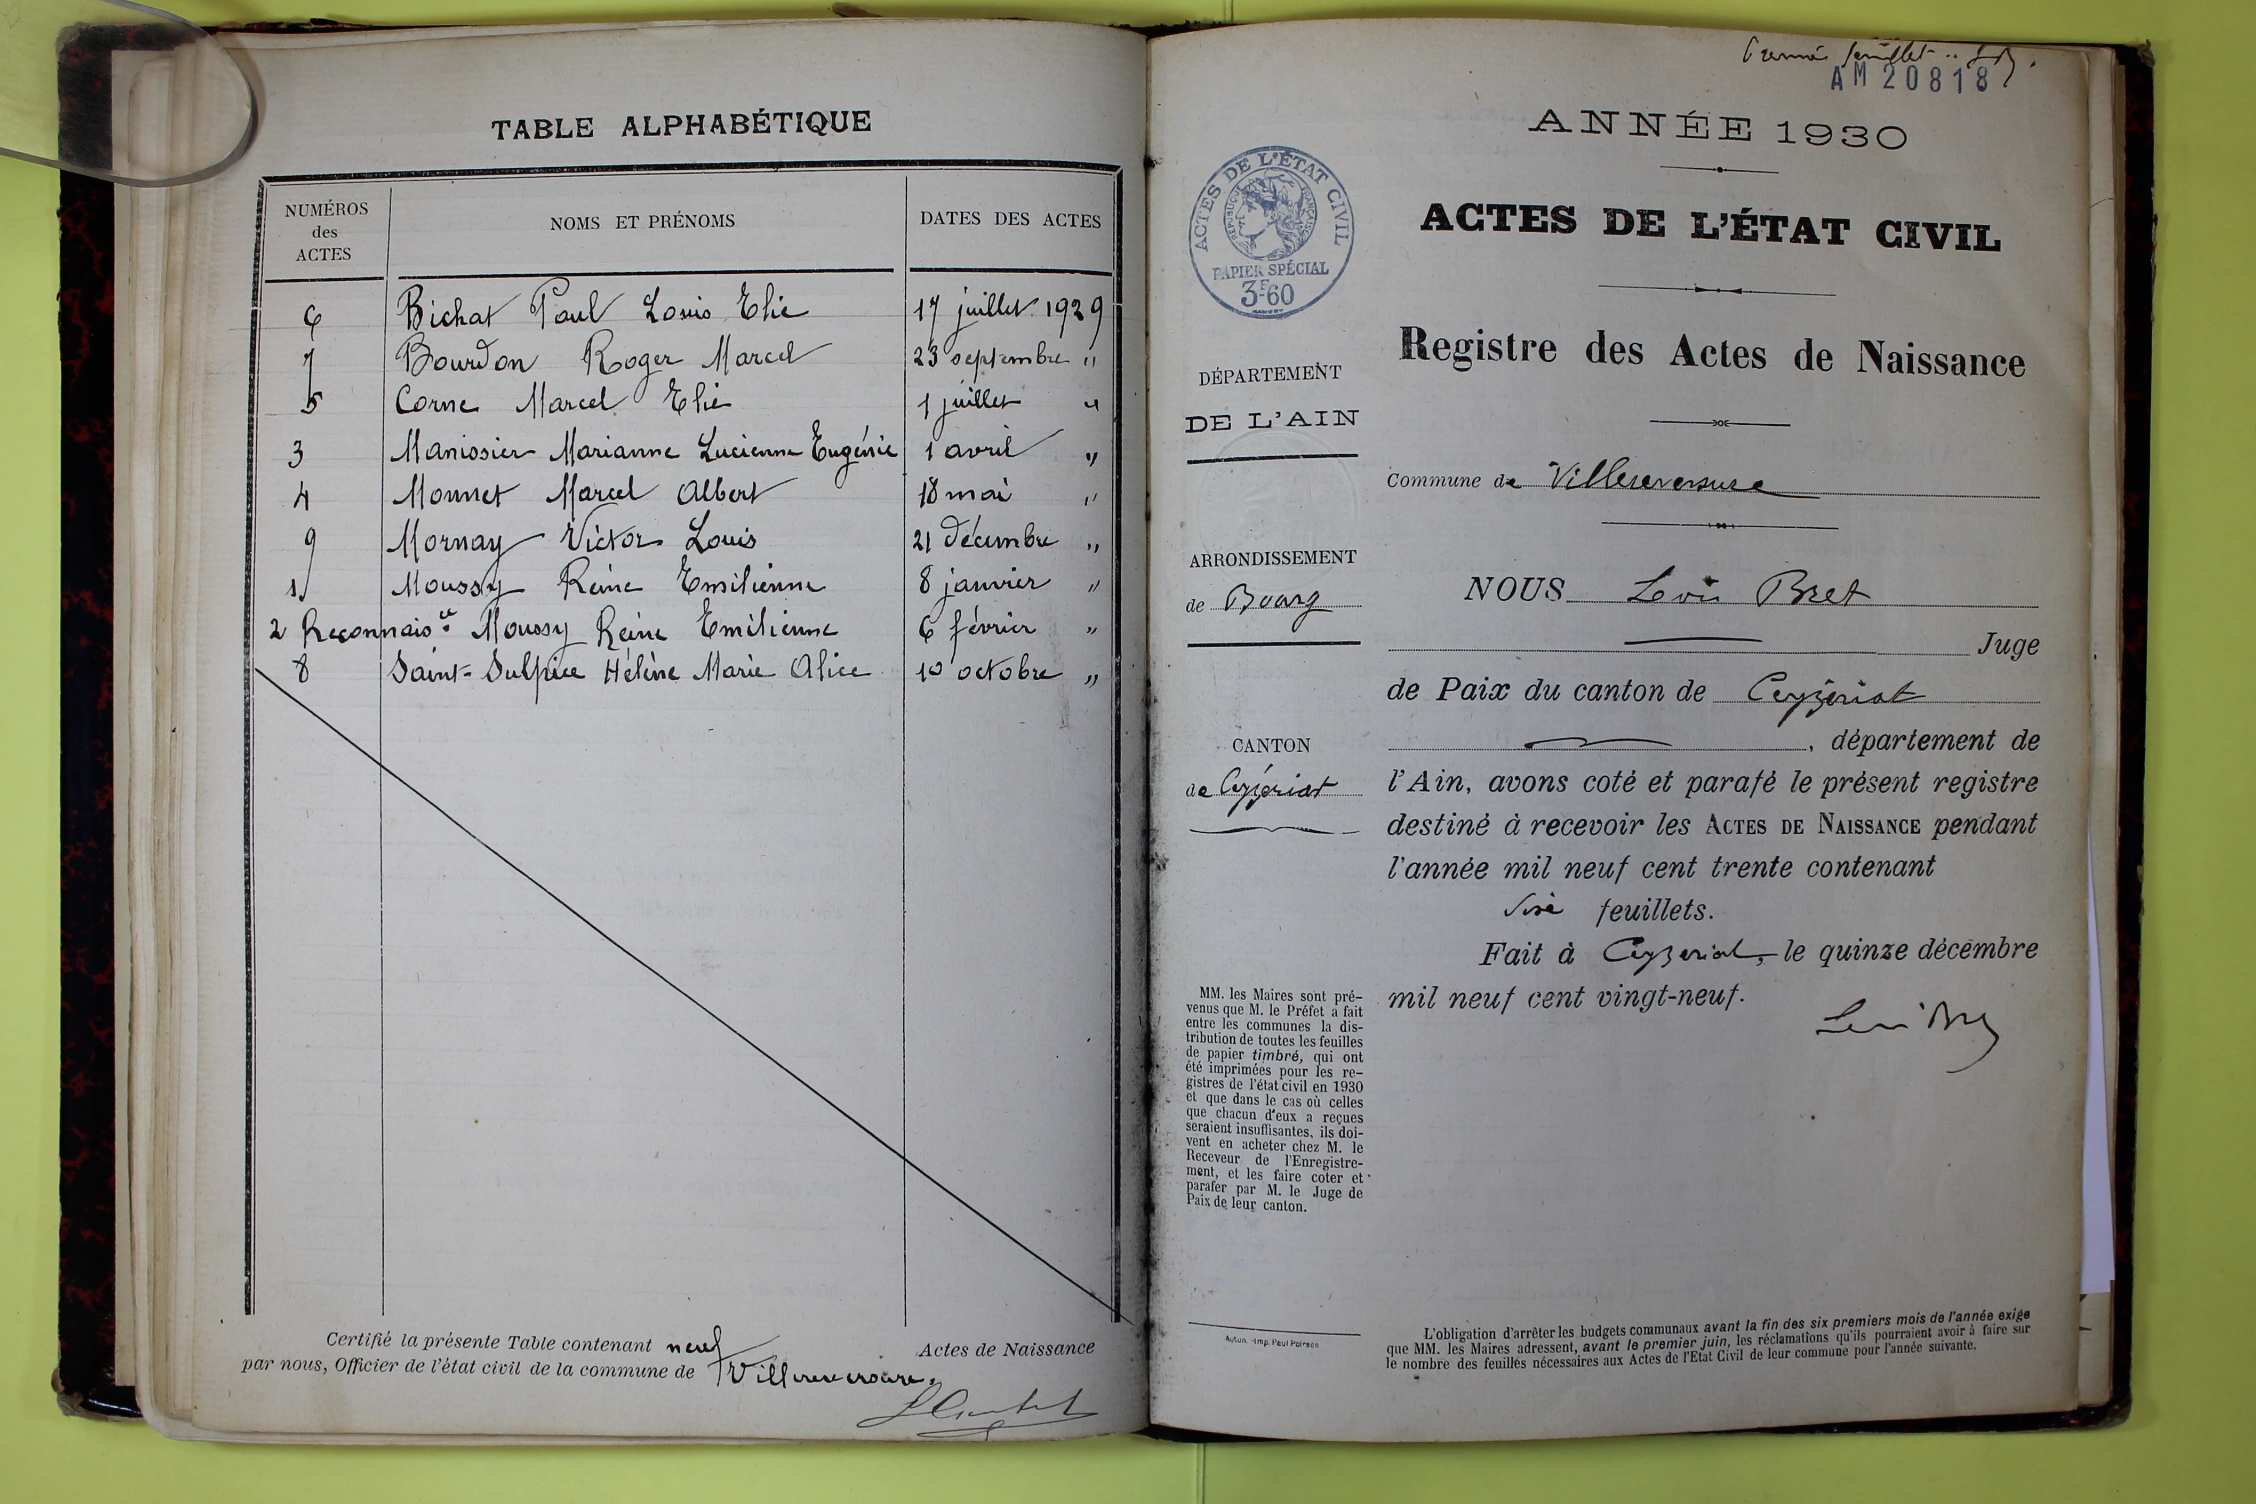 TABLE ALPHABÉTIQUE
NUMÉROS des ACTES NOMS ET PRÉNOMS DATES DES ACTES
6 Bichat Paul Louis Elie 17 juillet 1929
7 Bourdon Roger Marcel 23 septembre "
5 Corne Marcel Elie 1 juillet "
3 Manissier Marianne Lucienne Eugénie 1 avril "
4 Monnet Marcel Albert 18 mai "
9 Mornay Victor Louis 21 décembre "
1 Moussy Reine Emilienne 8 janvier "
2 Reconnaisce Moussy Reine Emilienne 6 février "
8 Saint-Sulpice Hélène Marie Alice 10 octobre "
Certifié la présente Table contenant neuf Actes de Naissance
par nous, Officier de l'état civil de la commune de Villereversure.
feuillet
AM 20818
ANNÉE 1930
ACTES DE L'ÉTAT CIVIL
RÉPUBLIQUE FRANÇAISE
PAPIER SPÉCIAL
3F60
ACTES DE L'ÉTAT CIVIL
Registre des Actes de Naissance
DÉPARTEMENT
DE L'AIN
ARRONDISSEMENT
de Bourg
CANTON
de Ceyzériat
MM. les Maires sont pré-
venus que M. le Préfet a fait
entre les communes la dis-
tribution de toutes les feuilles
de papier timbré, qui ont
été imprimées pour les re-
gistres de l'état civil en 1930
et que dans le cas où celles
que chacun d'eux a reçues
seraient insuffisantes, ils doi-
vent en acheter chez M. le
Receveur de l'Enregistre-
ment, et les faire coter et
parafer par M. le Juge de
Paix de leur canton.
Autun. - Imp. Paul Poirson
Commune de Villereversure
NOUS Louis Bret
Juge
de Paix du canton de Ceyzériat
, département de
l'Ain, avons coté et parafé le présent registre
destiné à recevoir les ACTES DE NAISSANCE pendant
l'année mil neuf cent trente contenant
feuillets.
Fait à Ceyzeriat, le quinze décembre
mil neuf cent vingt-neuf.
L'obligation d'arrêter les budgets communaux avant la fin des six premiers mois de l'année exige
que MM. les Maires adressent, avant le premier juin, les réclamations qu'ils pourraient avoir à faire sur
le nombre des feuilles nécessaires aux Actes de l'Etat Civil de leur commune pour l'année suivante.